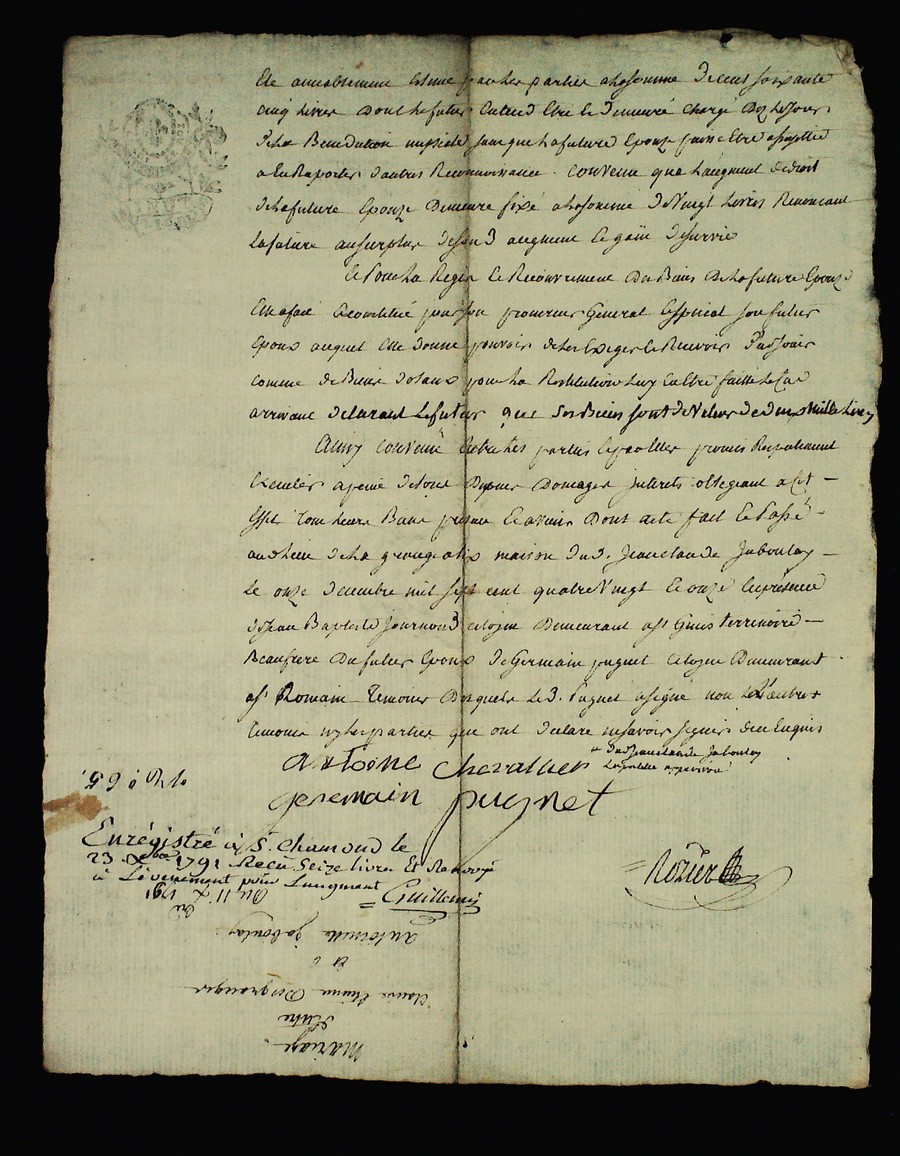 Ete amiablement Estimé par les parties a la somme de cent soixante
cinq livres Dont le futur Entend Etre et Demeuré Chargé Dez le jour
De la Benediction nuptiale sans que la future Epouze puisse Etre
a En Raporter d'autres Reconnoissance. Convenu que l'augment
de la future Epouze Demeure fixé a la somme de Vingt Livres Renoncant
La future au surplus Desond augment et gain de survie
Et Pour La Regie Et Recouvrement Des Biens De la future Epouze
Elle a fait Et constitué pour son procureur General Espécial son futur
Epoux auquel Elle Donne pouvoir de Les Exiger Et Recevoir
comme de Biens Dotaux pour La Restitution Luy En Etre faitte Le Cas
arrivant declarant Le futur que ses Biens sont de Valeur de deux Mille Livres
Ainsy convenu Entre les parties Lesquelles promis
Executer a peine de tous Depens Domages Interets obligeant a cet
Effet Tous leurs Biens presens Et avenir Dont acte fait Et Passé
au lieu de la maison dud. Jean claude Jaboulay
Le onze Decembre mil sept cent quatre Vingt Et onze En présence
de Jean Baptiste Journoud citoyen Demeurant a St Genis terrenoire
Beaufrere Du futur Epoux Et Germain pugnet Citoyen Demeurant
a St Romain Temoins Desquels Le d. Pugnet a signé non L'autre
temoin ny les parties qui ont declaré ne savoir signer de ce Enquis
dud Jean claude Jaboulay
antoine Chevallier
germain pugnet
Rozier
Enrégistré à St. Chamond le
23 Xbre 1791 Recu Seize livres Et Renvoyé
à L'évenement pour L'augment
Guillemin
Du 11 Xbre 1791
Mariage
Entre
Claude Etienne Desgranges
et
Antoinette Jaboulay